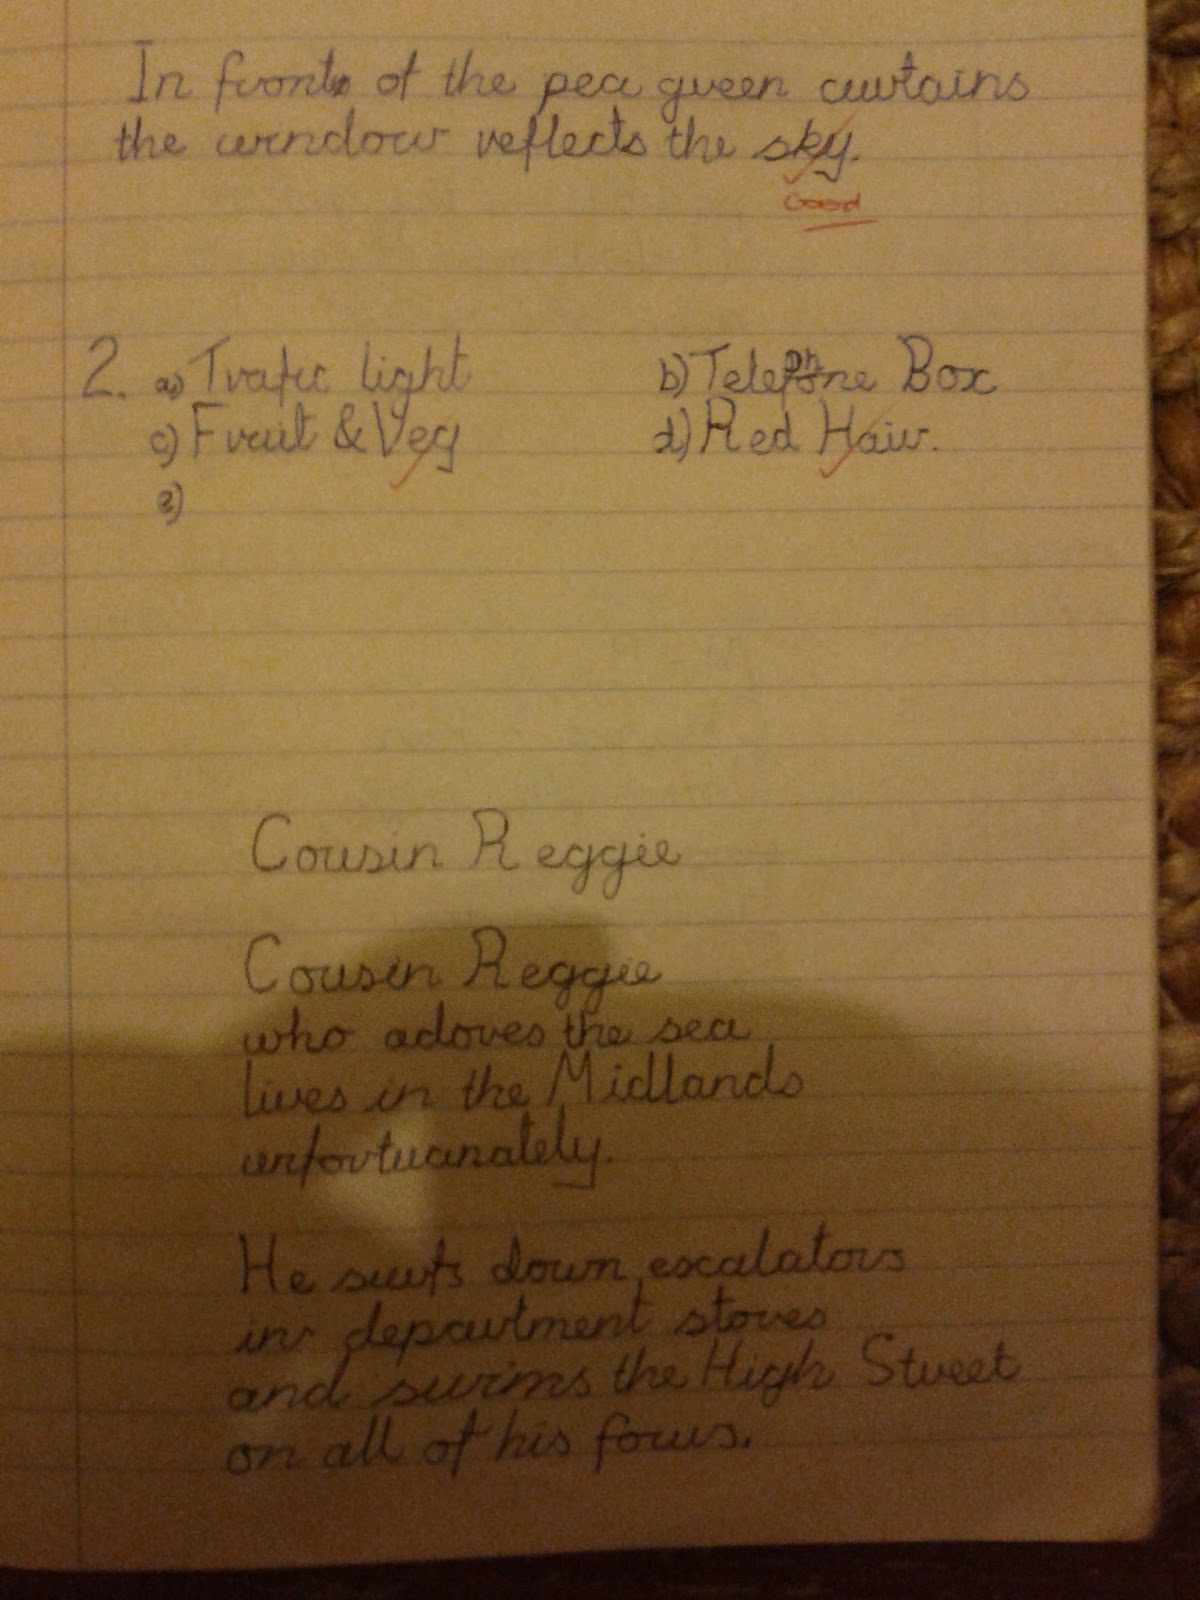 In front of the pea green curtains
the window reflects the sky.
Good
2. a) Trafic light b) Telephone Box
c) Fruit & Veg d) Red Hair.
e)
Cousin Reggie
Cousin Reggie
who adores the sea
lives in the Midlands
unfortuanately.
He surfs down escalators
in department stores
and swims the High Street
on all of his fours.